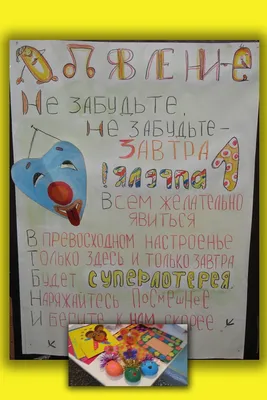 ОБЪЯВЛЕНИЕ
НЕ ЗАБУДЬТЕ,
НЕ ЗАБУДЬТЕ-
ЗАВТРА
!ЯЛЕРПА 1
ВСЕМ ЖЕЛАТЕЛЬНО
ЯВИТЬСЯ
В ПРЕВОСХОДНОМ НАСТРОЕНЬЕ
ТОЛЬКО ЗДЕСЬ И ТОЛЬКО ЗАВТРА
БУДЕТ СУПЕРЛОТЕРЕЯ.
НАРЯЖАЙТЕСЬ ПОСМЕШНЕЕ
И БЕГИТЕ К НАМ СКОРЕЕ.